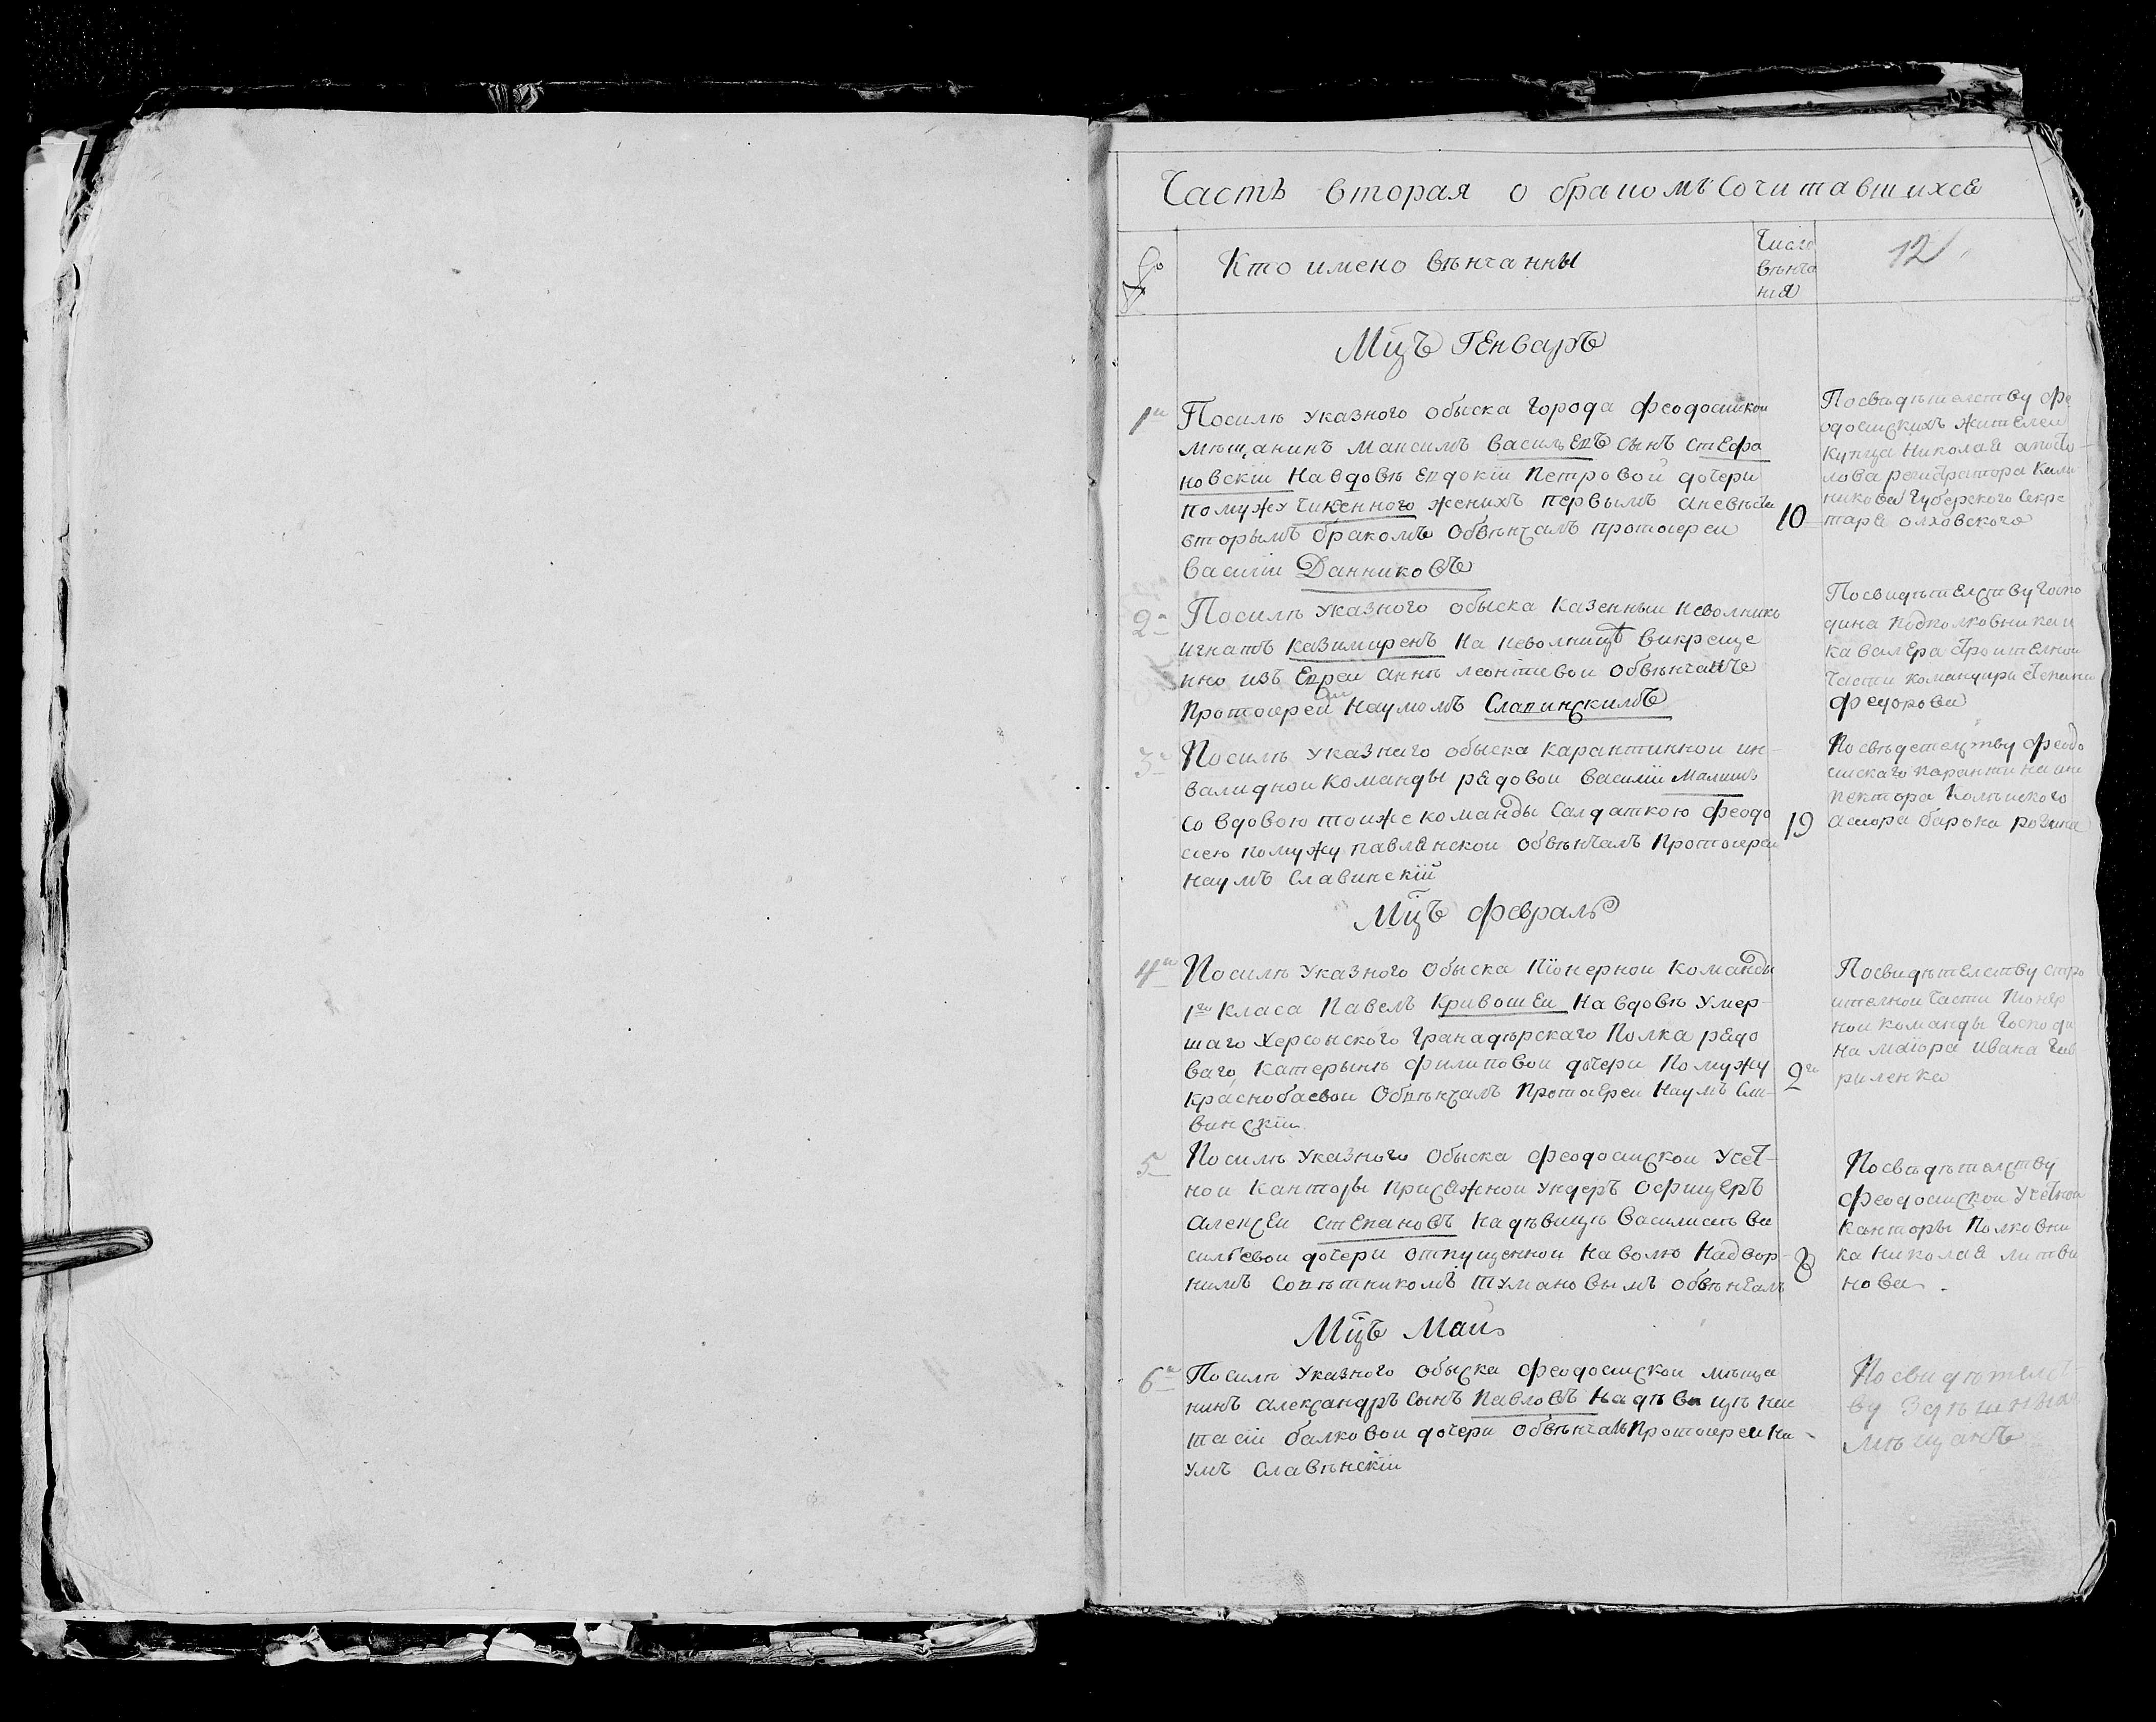 Часть вторая о бракомъ сочитавшихся
№
Кто имено вѣнчанны
Число
вѣнча
нія
12
Мцъ Генварь
1й
Посилѣ указного обыска города феодосийской
мѣщанинъ Максимъ васильевъ сынъ стефа
новскій На вдовѣ Евдокіи Петровой дочери
по мужу Чикенного женихъ первымъ а невѣста
вторымъ бракомъ обвѣнчалъ протоиереи
василіи Данниковъ
10
Посвидѣтелству фе
одосискихъ жителеи
купца Николая апосто
лова регистратора Кали
никова Губерского Секре
таря олховского
2й
Посилѣ указного обыска Казенныи неволникъ
игнатъ Казимиревъ На неволницѣ викреще
нно изъ Евреи аннѣ леонтиевои обвѣнчанъ
Протоиереи Наумомъ Славинскимъ
Посвидѣтелству Госпо
дина подполковника и
кавалера строителнои
части командира Степана
федорова
3й
Посилѣ указнаго обыска карантиннои ин-
валиднои команды рядовои василіи Малишъ
со вдовою тоиже команды Салдаткою феодо
сиею по мужу павлѣнской обвѣнчалъ Протоиереи
Наумъ Славинскій
19
Посвѣдетелству феодо
сискаго карантина инс
пектора Колѣжского
асиора барона розина
Мцъ февраль
4й
Посилѣ указного обыска Піонернои команды
1го класа Павелъ Кривошеи На вдовѣ умер-
шаго Херсонского Гранадѣрскаго Полка рядо
ваго Катерынѣ филиповои дочери по мужу
Краснобаевои Обвѣнчалъ Протоиереи Наумъ Сла-
винскіи
2го
Посвидѣтелству стро
ителнои части Пионер
нои команды Господи
на Маіора Ивана Гав
риленка
5
Посилѣ указного обыска феодосискои Учет-
нои Канторы присяжнои ундеръ офицеръ
алексеи степановъ На дѣвицѣ василисѣ ва
сильевои дочери отпущеннои на волю Надвор-
нимъ Совѣтникомъ тумановымъ обвѣнчалъ
8
Посвидѣтелству
феодосискои Учетнои
Канторы Полковни
ка Николая литви
нова.
Мцъ Маи
6й
Посилѣ указного обыска феодосискои мѣща
нинъ александръ Сынъ Павловъ На дѣвицѣ нас
тасіи балковои дочери обвѣнчалъ Протоиереи На-
умъ Славѣнскіи
Посвидѣтелст
ву
мѣщанъ